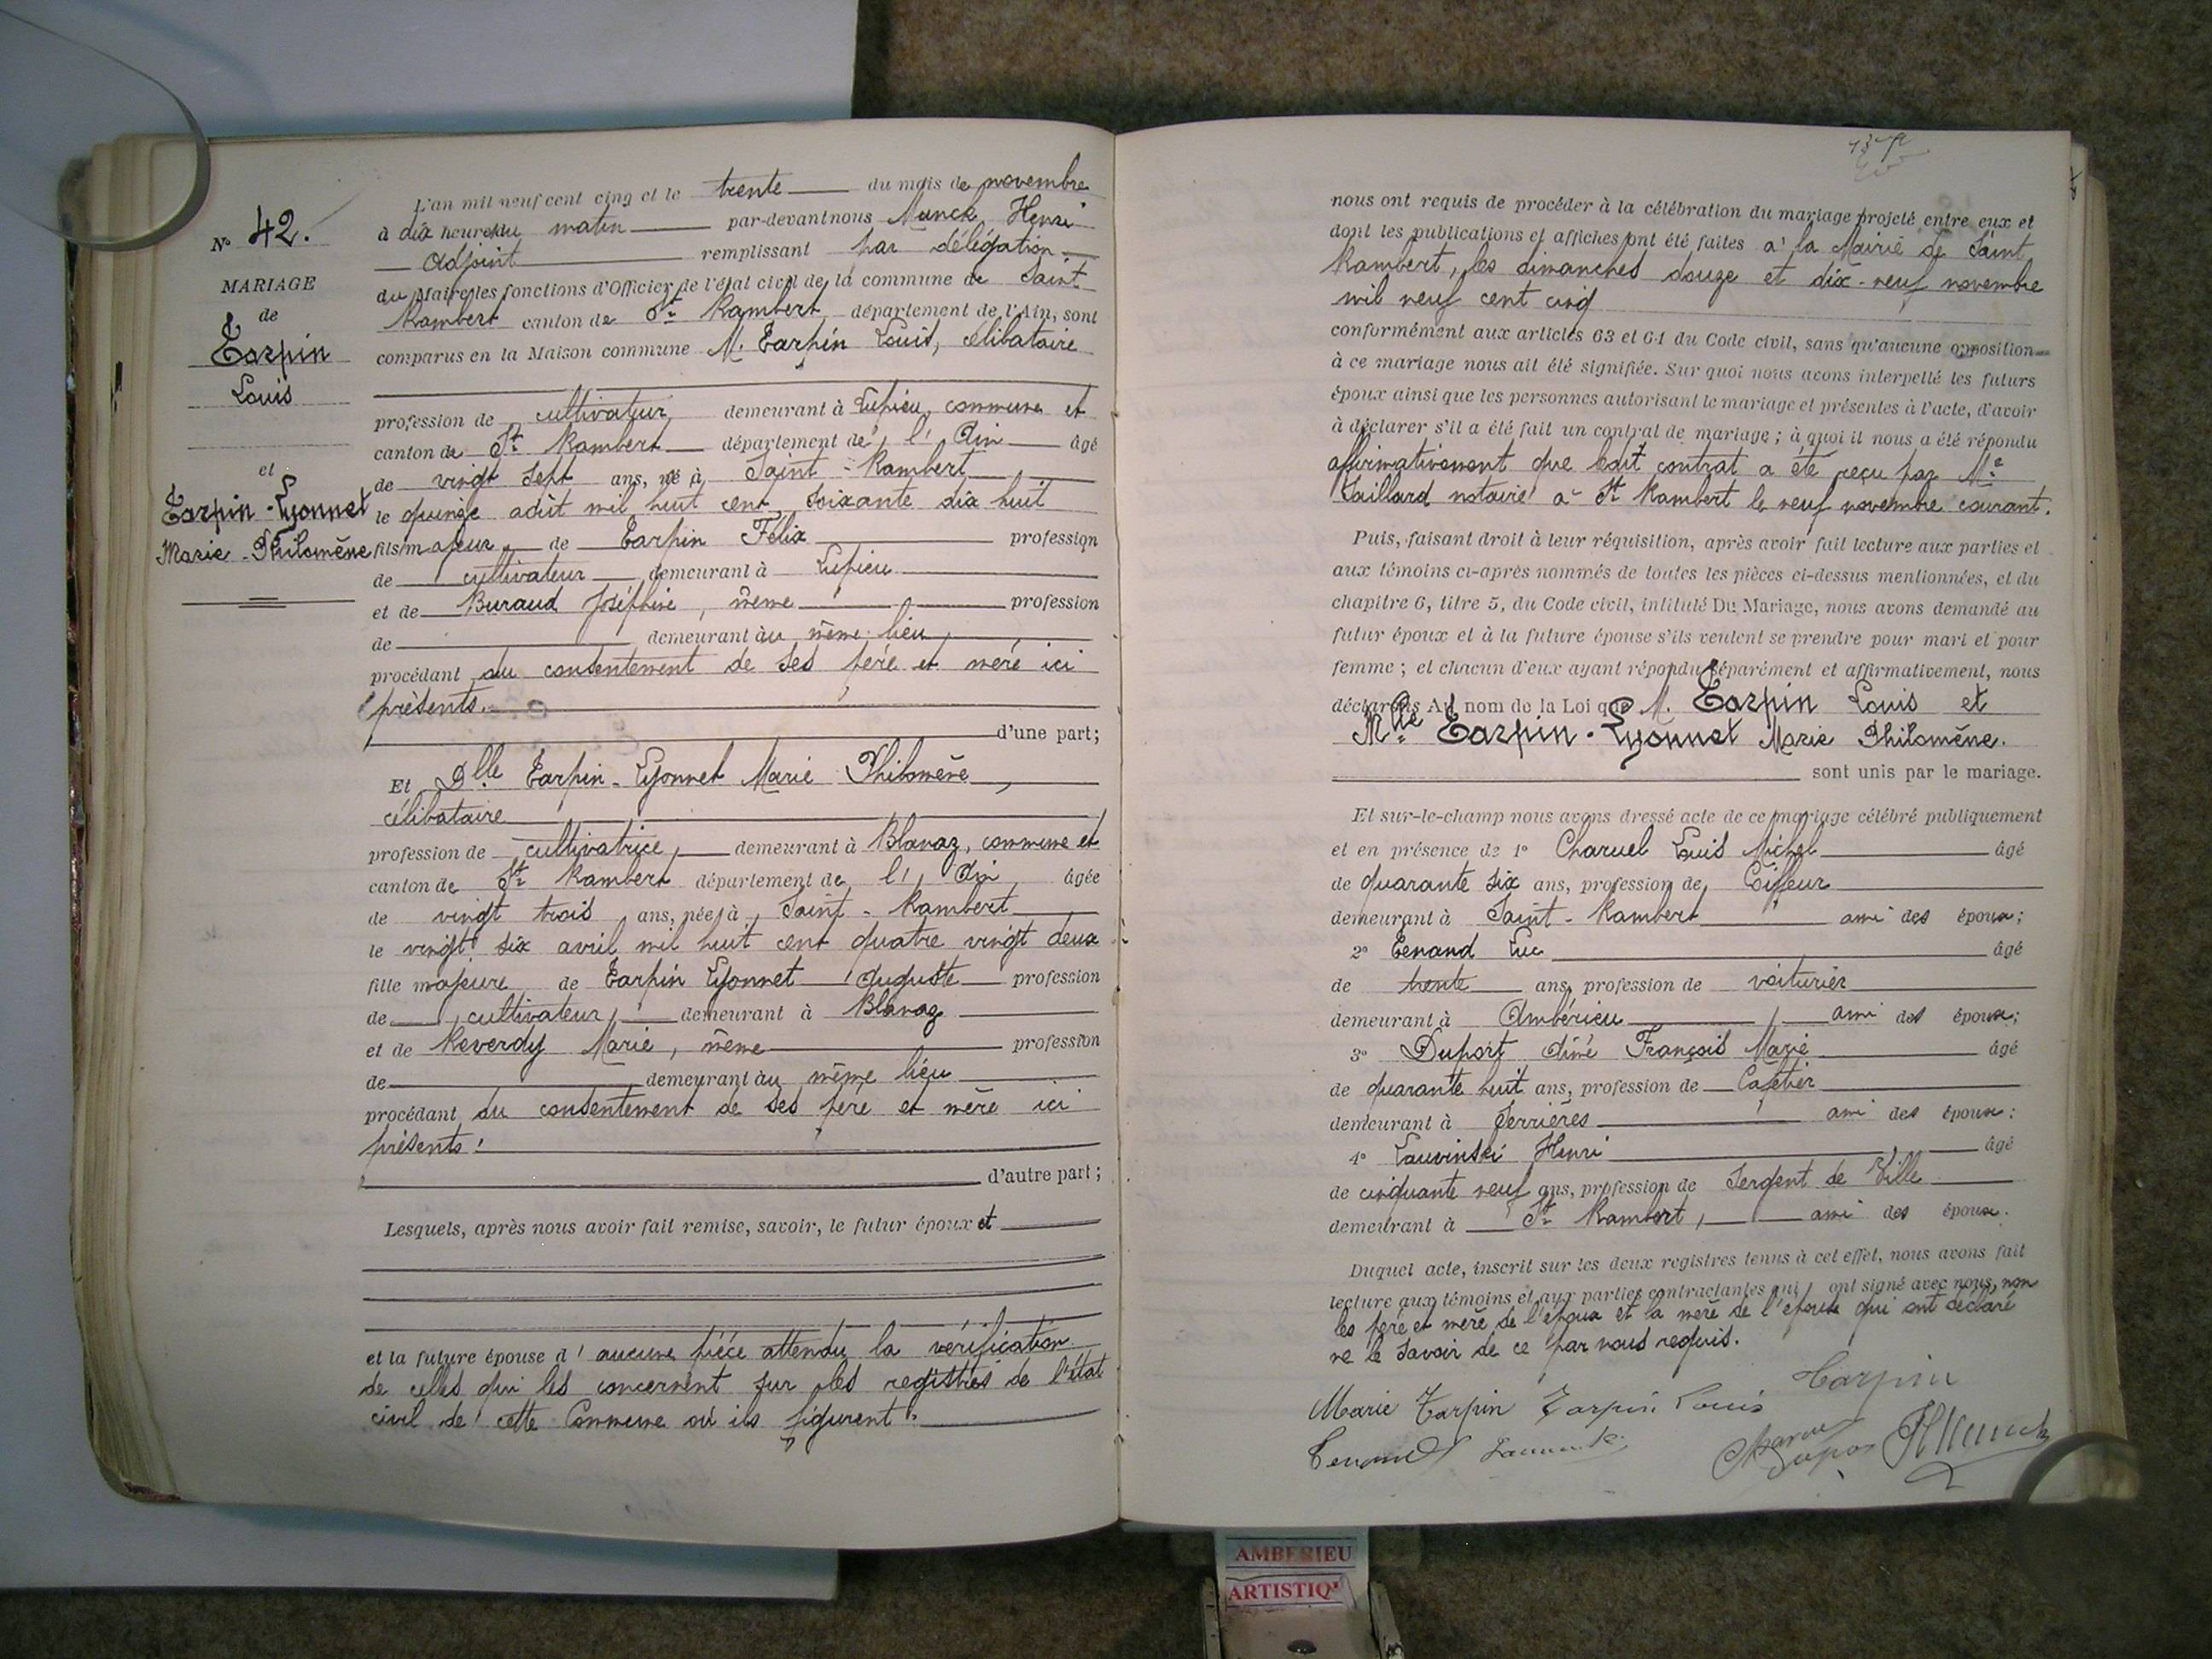 N° 42.
MARIAGE
de
Tarpin
Louis
et
Tarpin-Lyonnet
Marie-Philomène
L'an mil neuf cent cinq et le trente du mois de novembre
à dix heures du matin par-devant nous Munck Henri
Adjoint remplissant par délégation
du Maire les fonctions d'Officier de l'état civil de la commune de Saint
Rambert canton de St Rambert, département de l'Ain, sont
comparus en la Maison commune M. Tarpin Louis, célibataire
profession de cultivateur, demeurant à Lupieu, commune et
canton de St Rambert département de l'Ain âgé
de vingt sept ans, né à Saint-Rambert
le quinze août mil huit cent soixante dix huit
fils majeur de Tarpin Félix profession
de cultivateur demeurant à Lupieu
et de Buraud Joséphine, même profession
de demeurant au même lieu
procédant du consentement de ses père et mère ici
présents.
d'une part;
Et Dlle Tarpin-Lyonnet Marie Philomène,
célibataire
profession de cultivatrice, demeurant à Blanaz, commune et
canton de St Rambert département de l'Ain âgée
de vingt trois ans, née à Saint-Rambert
le vingt six avril mil huit cent quatre vingt deux
fille majeure de Tarpin Lyonnet Auguste profession
de cultivateur, demeurant à Blanaz
et de Reverdy Marie, même profession
de demeurant au même lieu
procédant du consentement de ses père et mère ici
présents.
d'autre part;
Lesquels, après nous avoir fait remise, savoir, le futur époux et
et la future épouse d'aucune pièce attendu la vérification
de celles qui les concernent sur les registres de l'état
civil de cette Commune où ils figurent.
nous ont requis de procéder à la célébration du mariage projeté entre eux et
dont les publications et affiches ont été faites à la Mairie de Saint
Rambert, les dimanches douze et dix-neuf novembre
mil neuf cent cinq
conformément aux articles 63 et 64 du Code civil, sans qu'aucune opposition
à ce mariage nous ait été signifiée. Sur quoi nous avons interpellé les futurs
époux ainsi que les personnes autorisant le mariage et présentes à l'acte, d'avoir
à déclarer s'il a été fait un contrat de mariage; à quoi il nous a été répondu
affirmativement que ledit contrat a été reçu par Me
Saillard notaire à St Rambert le neuf novembre courant.
Puis, faisant droit à leur réquisition, après avoir fait lecture aux parties et
aux témoins ci-après nommés de toutes les pièces ci-dessus mentionnées, et du
chapitre 6, titre 5, du Code civil, intitulé Du Mariage, nous avons demandé au
futur époux et à la future épouse s'ils veulent se prendre pour mari et pour
femme; et chacun d'eux ayant répondu séparément et affirmativement, nous
déclarons Au nom de la Loi que M. Tarpin Louis et
Mlle Tarpin-Lyonnet Marie Philomène.
sont unis par le mariage.
Et sur-le-champ nous avons dressé acte de ce mariage célébré publiquement
et en présence de 1° Charuel Louis Michel âgé
de quarante six ans, profession de Coiffeur
demeurant à Saint-Rambert ami des époux;
2° Tenand Luc âgé
de trente ans, profession de voiturier
demeurant à Ambérieu, ami des époux;
3° Duport Aimé François Marie âgé
de quarante huit ans, profession de Cafetier
demeurant à Serrières ami des époux;
4° Lauvinski Henri âgé
de cinquante neuf ans, profession de Sergent de Ville
demeurant à St Rambert, ami des époux.
Duquel acte, inscrit sur les deux registres tenus à cet effet, nous avons fait
lecture aux témoins et aux parties contractantes qui ont signé avec nous, non
les père et mère de l'époux et la mère de l'épouse qui ont déclaré
ne le savoir de ce par nous requis.
Marie Tarpin Tarpin Louis Tarpin
Tenand Charuel Dupor HMunck
AMBERIEU
ARTISTIQ'